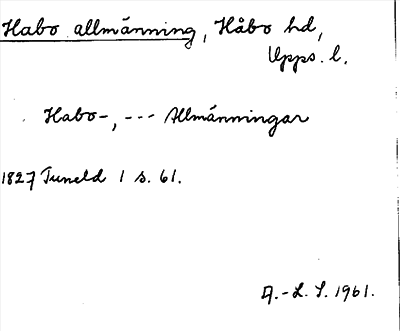 Habo allmänning, Håbo hd,
Upps. l.
Habo-, --- Allmänningar
1827 Tuneld 1 s. 61.
A.-L. S. 1961.